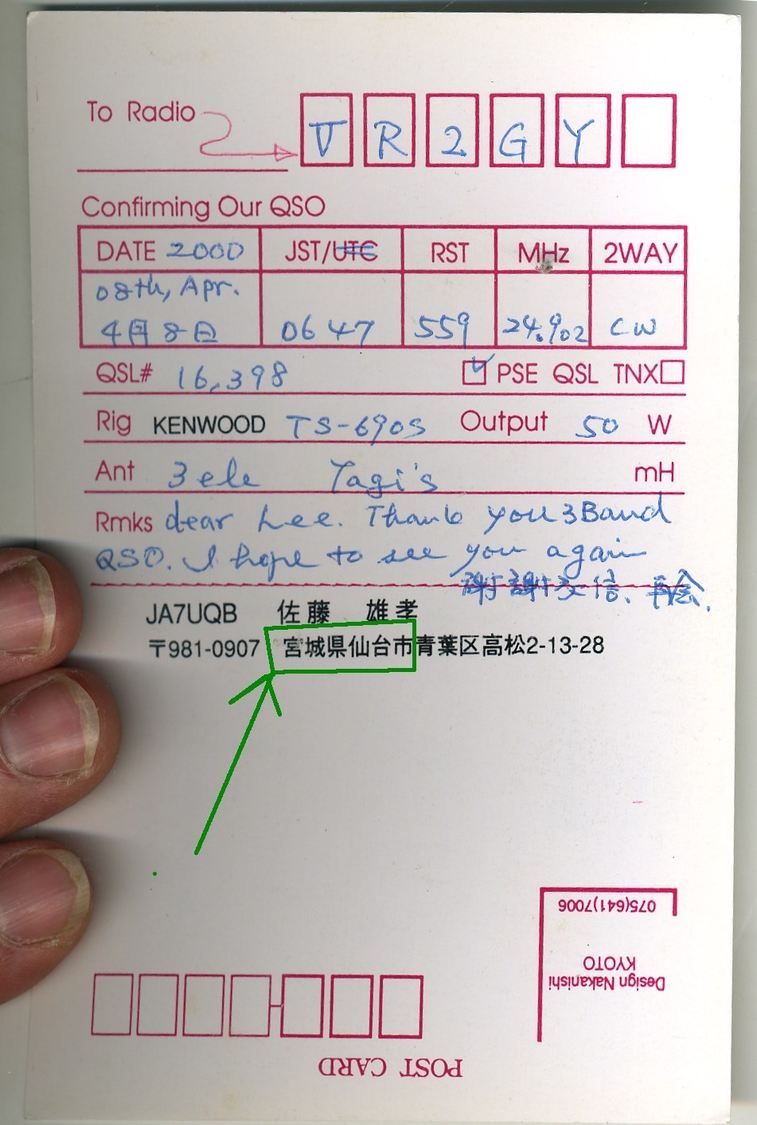 To Radio VR2GY
Confirming Our QSO
DATE 2000 JST/UTC RST MHz 2WAY
08th, Apr.
4月8日 0647 559 24.902 CW
QSL# 16,398 PSE QSL TNX
Rig KENWOOD TS-690S Output 50 W
Ant 3ele Yagi's mH
Rmks dear Lee. Thank you 3Band
QSO. I hope to see you again
謝謝交信、再会.
JA7UQB 佐藤 雄孝
〒981-0907 宮城県仙台市青葉区高松2-13-28
075(641)7006
Design Nakanishi
KYOTO
POST CARD